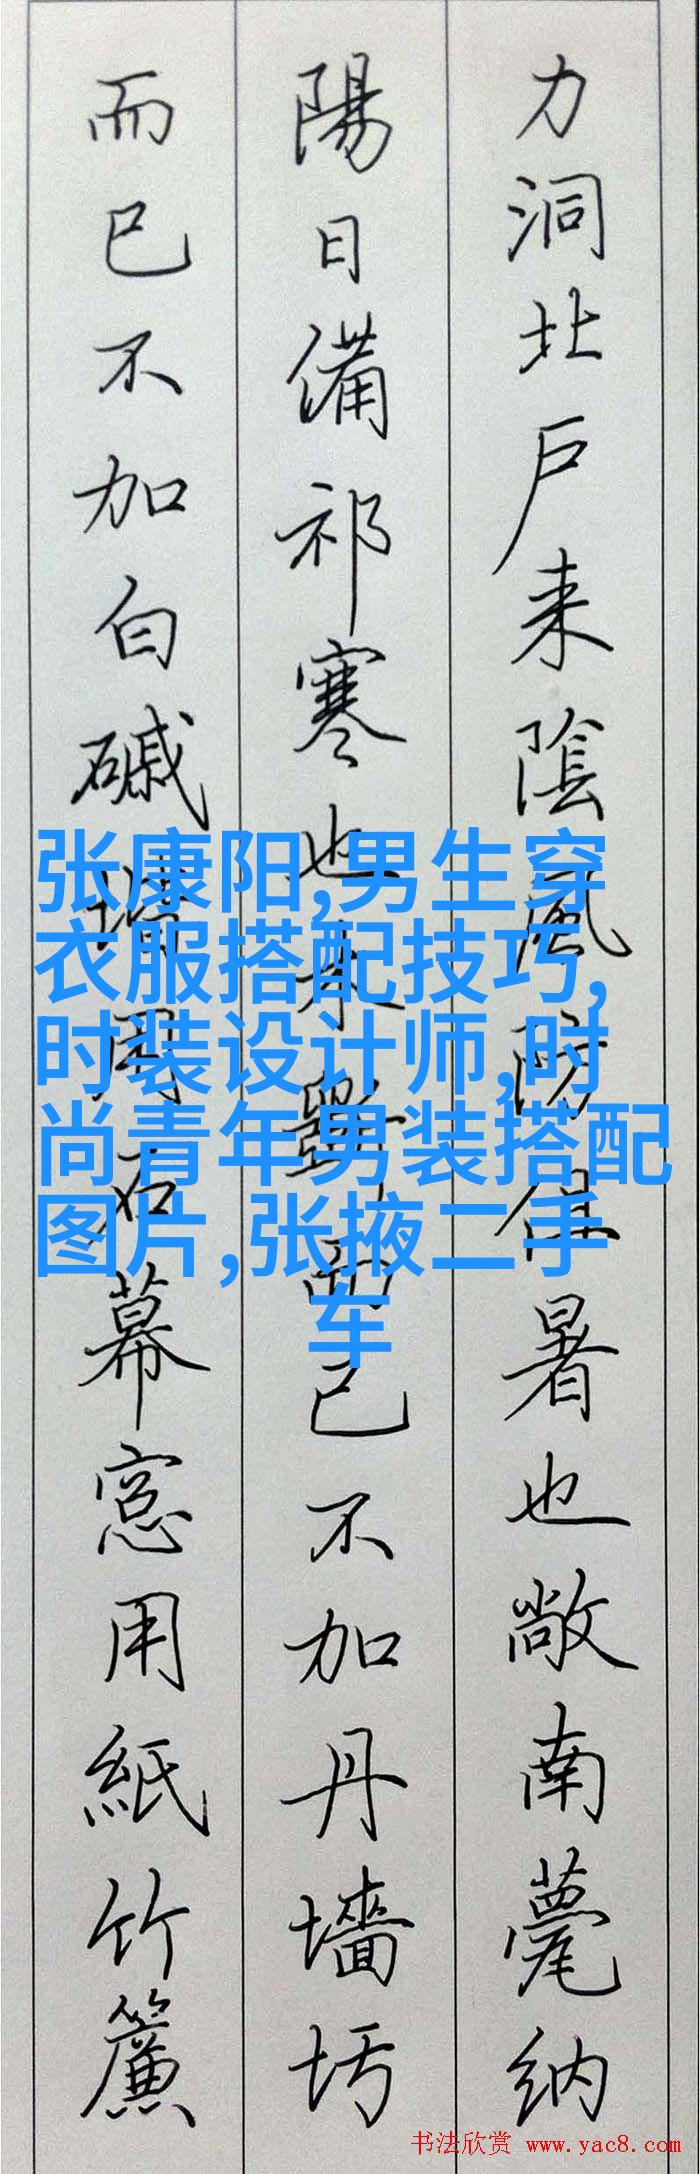 力洞北戸来陰風防徂暑也敞南甍納
陽日備祁寒也木斲而已不加丹墻圬
而已不加白墄堦用石冪窓用紙竹簾
张康阳,男生穿
衣服搭配技巧,
时装设计师,时
尚青年男装搭配
图片,张掖二手
车
书法欣赏 www.yac8.com